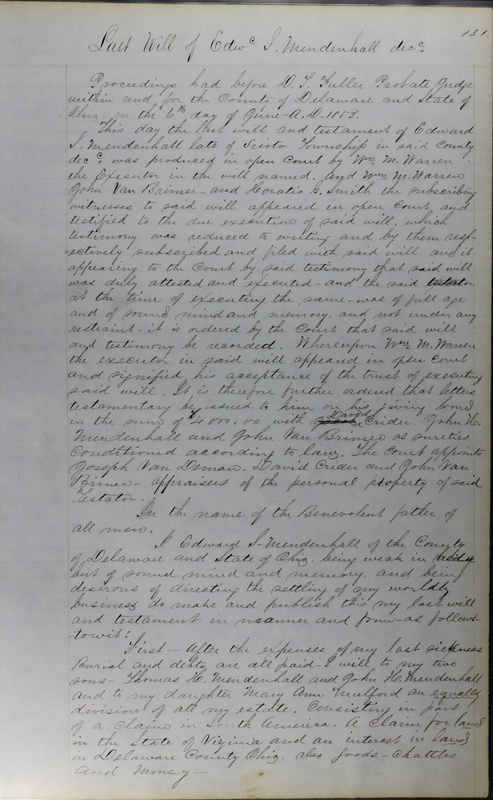 131
Last Will of Edwᶜ I. Mendenhall decᶜ
Proceedings had before D. T. Fuller Probate Judge
within and for the County of Delaware and State of
Ohio, on the 6th day of June A.D. 1853.
This day the last will and testament of Edward
I. Mendenhall late of Scioto Township in said County
decᶜ was produced in open Court by Wm M. Warren
the Executor in the will named. And Wm M. Warren
John Van Brimer and Horatio G. Smith the subscribing
witnesses to said will appeared in open Court, and
testified to the due execution of said will, which
testimony was reduced to writing and by them resp-
ectively subscribed and filed with said will and it
appearing to the Court by said testimony that said will
was duly attested and executed - and the said testator
at the time of executing the same - was of full age
and of sound mind and memory, and not under any
restraint - it is ordered by the Court that said will
and testimony be recorded. Whereupon Wm M. Warren
the executor in said will appeared in open Court
and signified his acceptance of the trust of executing
said will. It is therefore further ordered that letters
testamentary be issued to him on his giving bond
in the sum of 4000.00 with David Crider. John H.
Mendenhall and John Van Brimer as sureties
Conditioned according to law. The Court appoints
Joseph Van Deman. David Crider and John Van
Brimer - appraisers of the personal property of said
Testator.
In the name of the Benevolent father of
all men.
I Edward I. Mendenhall of the County
of Delaware and State of Ohio. being weak in body
but of sound mind and memory. and being
desirous of directing the settling of my worldly
business do make and publish this my last will
and testament in manner and form - as follows-
towit:
First - After the expenses of my last sickness
Burial and debts are all paid - I will to my two
sons - Thomas H. Mendenhall and John H. Mendenhall
and to my daughter Mary Ann Mulford an equally
division of all my estate. Consisting in part
of a claim in South America. A Claim for land
in the State of Virginia and an interest in land
in Delaware County Ohio. also goods - Chattles
and Money -